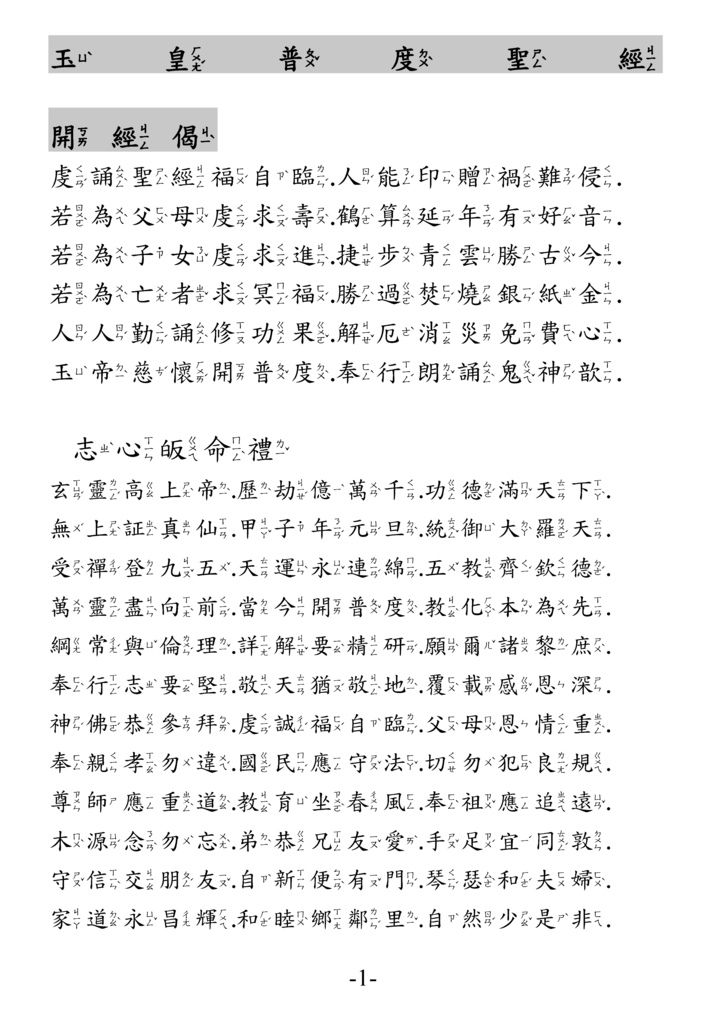 玉皇普度聖經
開經偈
虔誦聖經福自臨.人能印贈禍難侵.
若為父母虔求壽.鶴算延年有好音.
若為子女虔求進.捷步青雲勝古今.
若為亡者求冥福.勝過焚燒銀紙金.
人人勤誦修功果.解厄消災免費心.
玉帝慈懷開普度.奉行朗誦鬼神歆.
志心皈命禮
玄靈高上帝.歷劫億萬千.功德滿天下.
無上証真仙.甲子年元旦.統御大羅天.
受禪登九五.天運永連綿.五教齊欽德.
萬靈盡向前.當今開普度.教化本為先.
綱常與倫理.詳解要精研.願爾諸黎庶.
奉行志要堅.敬天猶敬地.覆載感恩深.
神佛恭參拜.虔誠福自臨.父母恩情重.
奉親孝勿違.國民應守法.切勿犯良規.
尊師應重道.教育坐春風.奉祖應追遠.
木源念勿忘.弟恭兄友愛.手足宜同敦.
守信交朋友.自新便有門.琴瑟和夫婦.
家道永昌輝.和睦鄉鄰里.自然少是非.
-1-